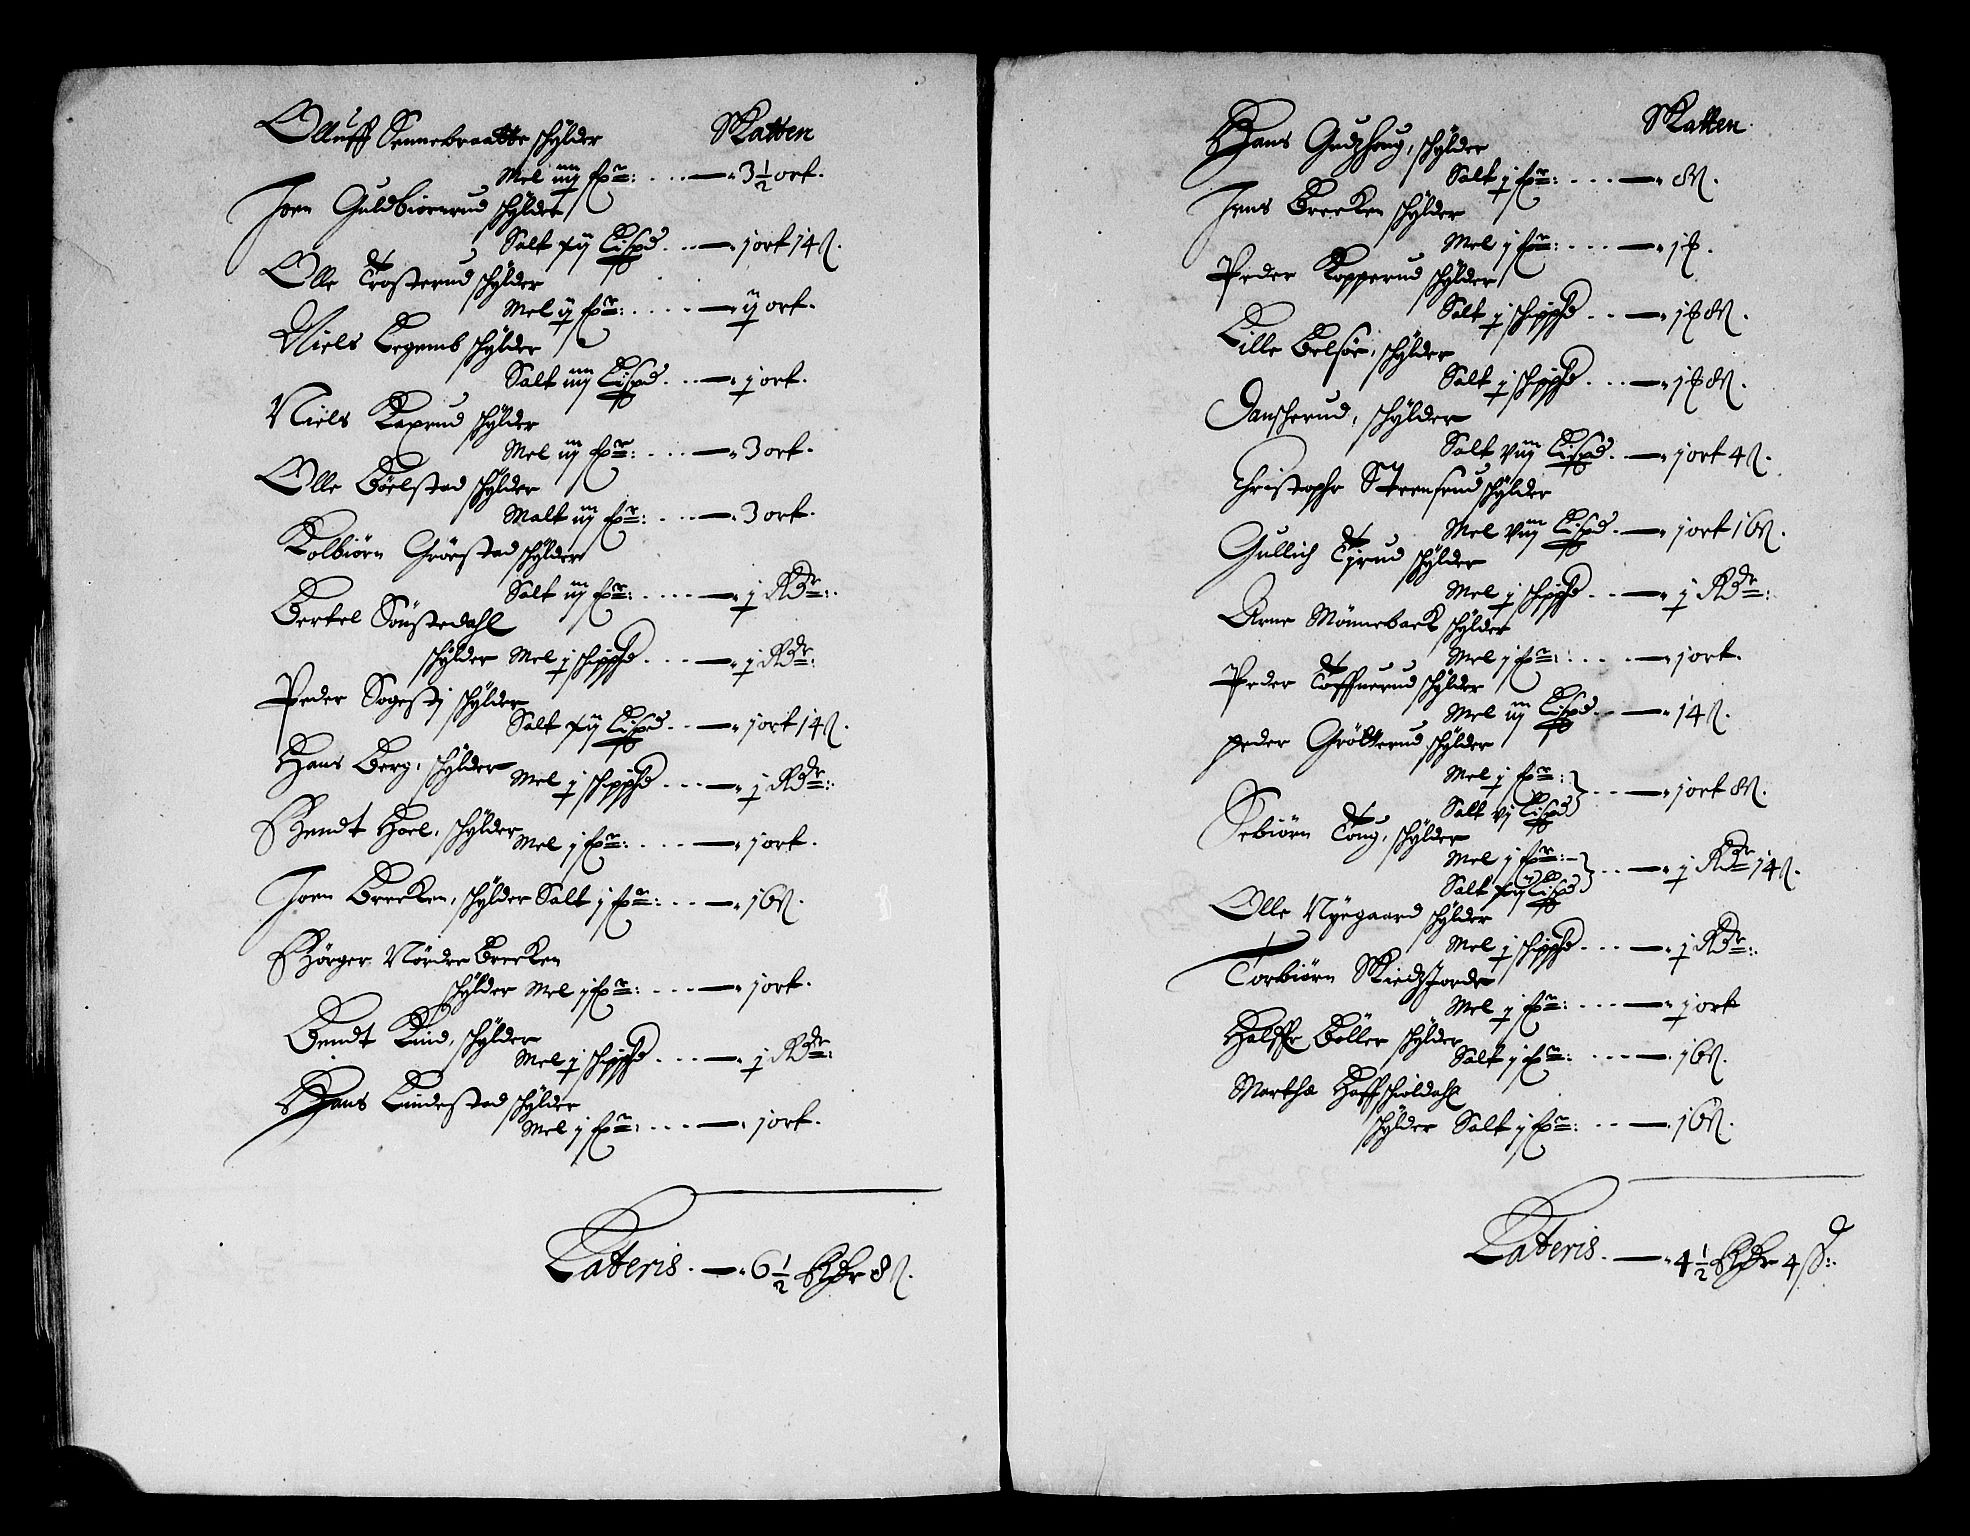 Olluff Sennebraatte schylder Skatten
Mel iiij fxr: . . . — 3 1/2 ort.
Joen Guldbiørnrud schylder
Salt xij Lispd . . — 1 ort 14 ß.
Olle Trosterud schylder
Mel ij fxr: . . . — ij ort.
Niels Legemb schylder
Salt iiij Lispd . . — j ort.
Niels Kaxrud schylder
Mel iij fxr: . . . — 3 ort.
Olle Bölstad schylder
Malt iij fxr: . . . — 3 ort.
Kolbiörn Grörstad schylder
Salt iij fxr: . . . — j Rdr:
Bertel Sönstedahl
schylder Mel j schippd . . . — j Rdr:
Peder Sogesti schylder
Salt xij Lispd . . — 1 ort 14 ß.
Hans Berg, schylder
Mel j schippd . . . — j Rdr:
Bendt Hoel, schylder
Mel j fxr: . . . — 1 ort.
Joen Brecken, schylder Salt j fxr: . . . — 16 ß.
Börger Nördre Brecken
schylder Mel j fxr: . . . — 1 ort.
Bendt Kind, schylder
Mel j schippd . . . — j Rdr:
Hans Lindestad schylder
Mel j fxr: . . . — 1 ort.
Lateris . — 6 1/2 Rdr 8 ß.
Skatten
Hans Gudzhoug, schylder
Salt j fxr: . . . — 8 ß.
Jens Brecken schylder
Mel j fxr: . . . — 1
Peder Kopperud schylder
Salt j schippd . . — 1 8 ß.
Lille Belsöe, schylder
Salt j schippd . . . — 1 8 ß.
Danscherud, schylder
Salt viij Lispd . . — 1 ort 4 ß.
Christophr Steensrud schylder
Mel viij Lispd . — 1 ort 16 ß.
Gullich Tyrud schylder
Mel j schippd . . — j Rdr:
Arne Mönnebaek schylder
Mel j fxr: . . . — 1 ort.
Peder Toffnerud schylder
Mel iij Lispd . . — 14 ß.
peder Gröttterud schylder
Mel j fxr:
Salt vj Lispd } . . . — 1 ort 8 ß.
Sebiörn Toug, schylder
Mel j fxr:
Salt xij Lispd } . . . — j Rdr 14 ß.
Olle Nyegaard schylder
Mel j schippd . . . — j Rdr:
Torbiörn Skiedzfoorde
Mel j fxr: . . . — j ort
Halffr Böller schylder
Salt j fxr: . . . — 16 ß.
Martha Hoffschioldahl
schylder Salt j fxr: . . — 16 ß.
Lateris . — 4 1/2 Rdr 4 ß: